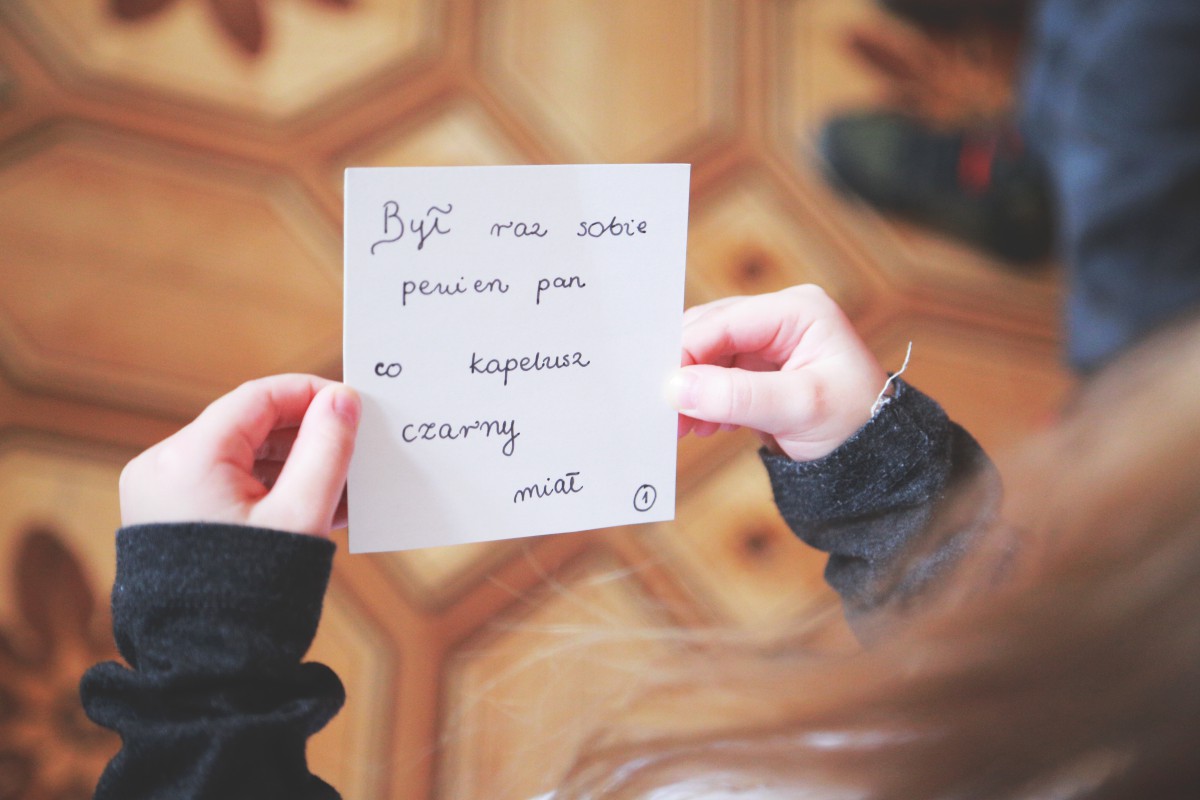 Był raz sobie
pewien pan
co kapelusz
czarny
miał 1